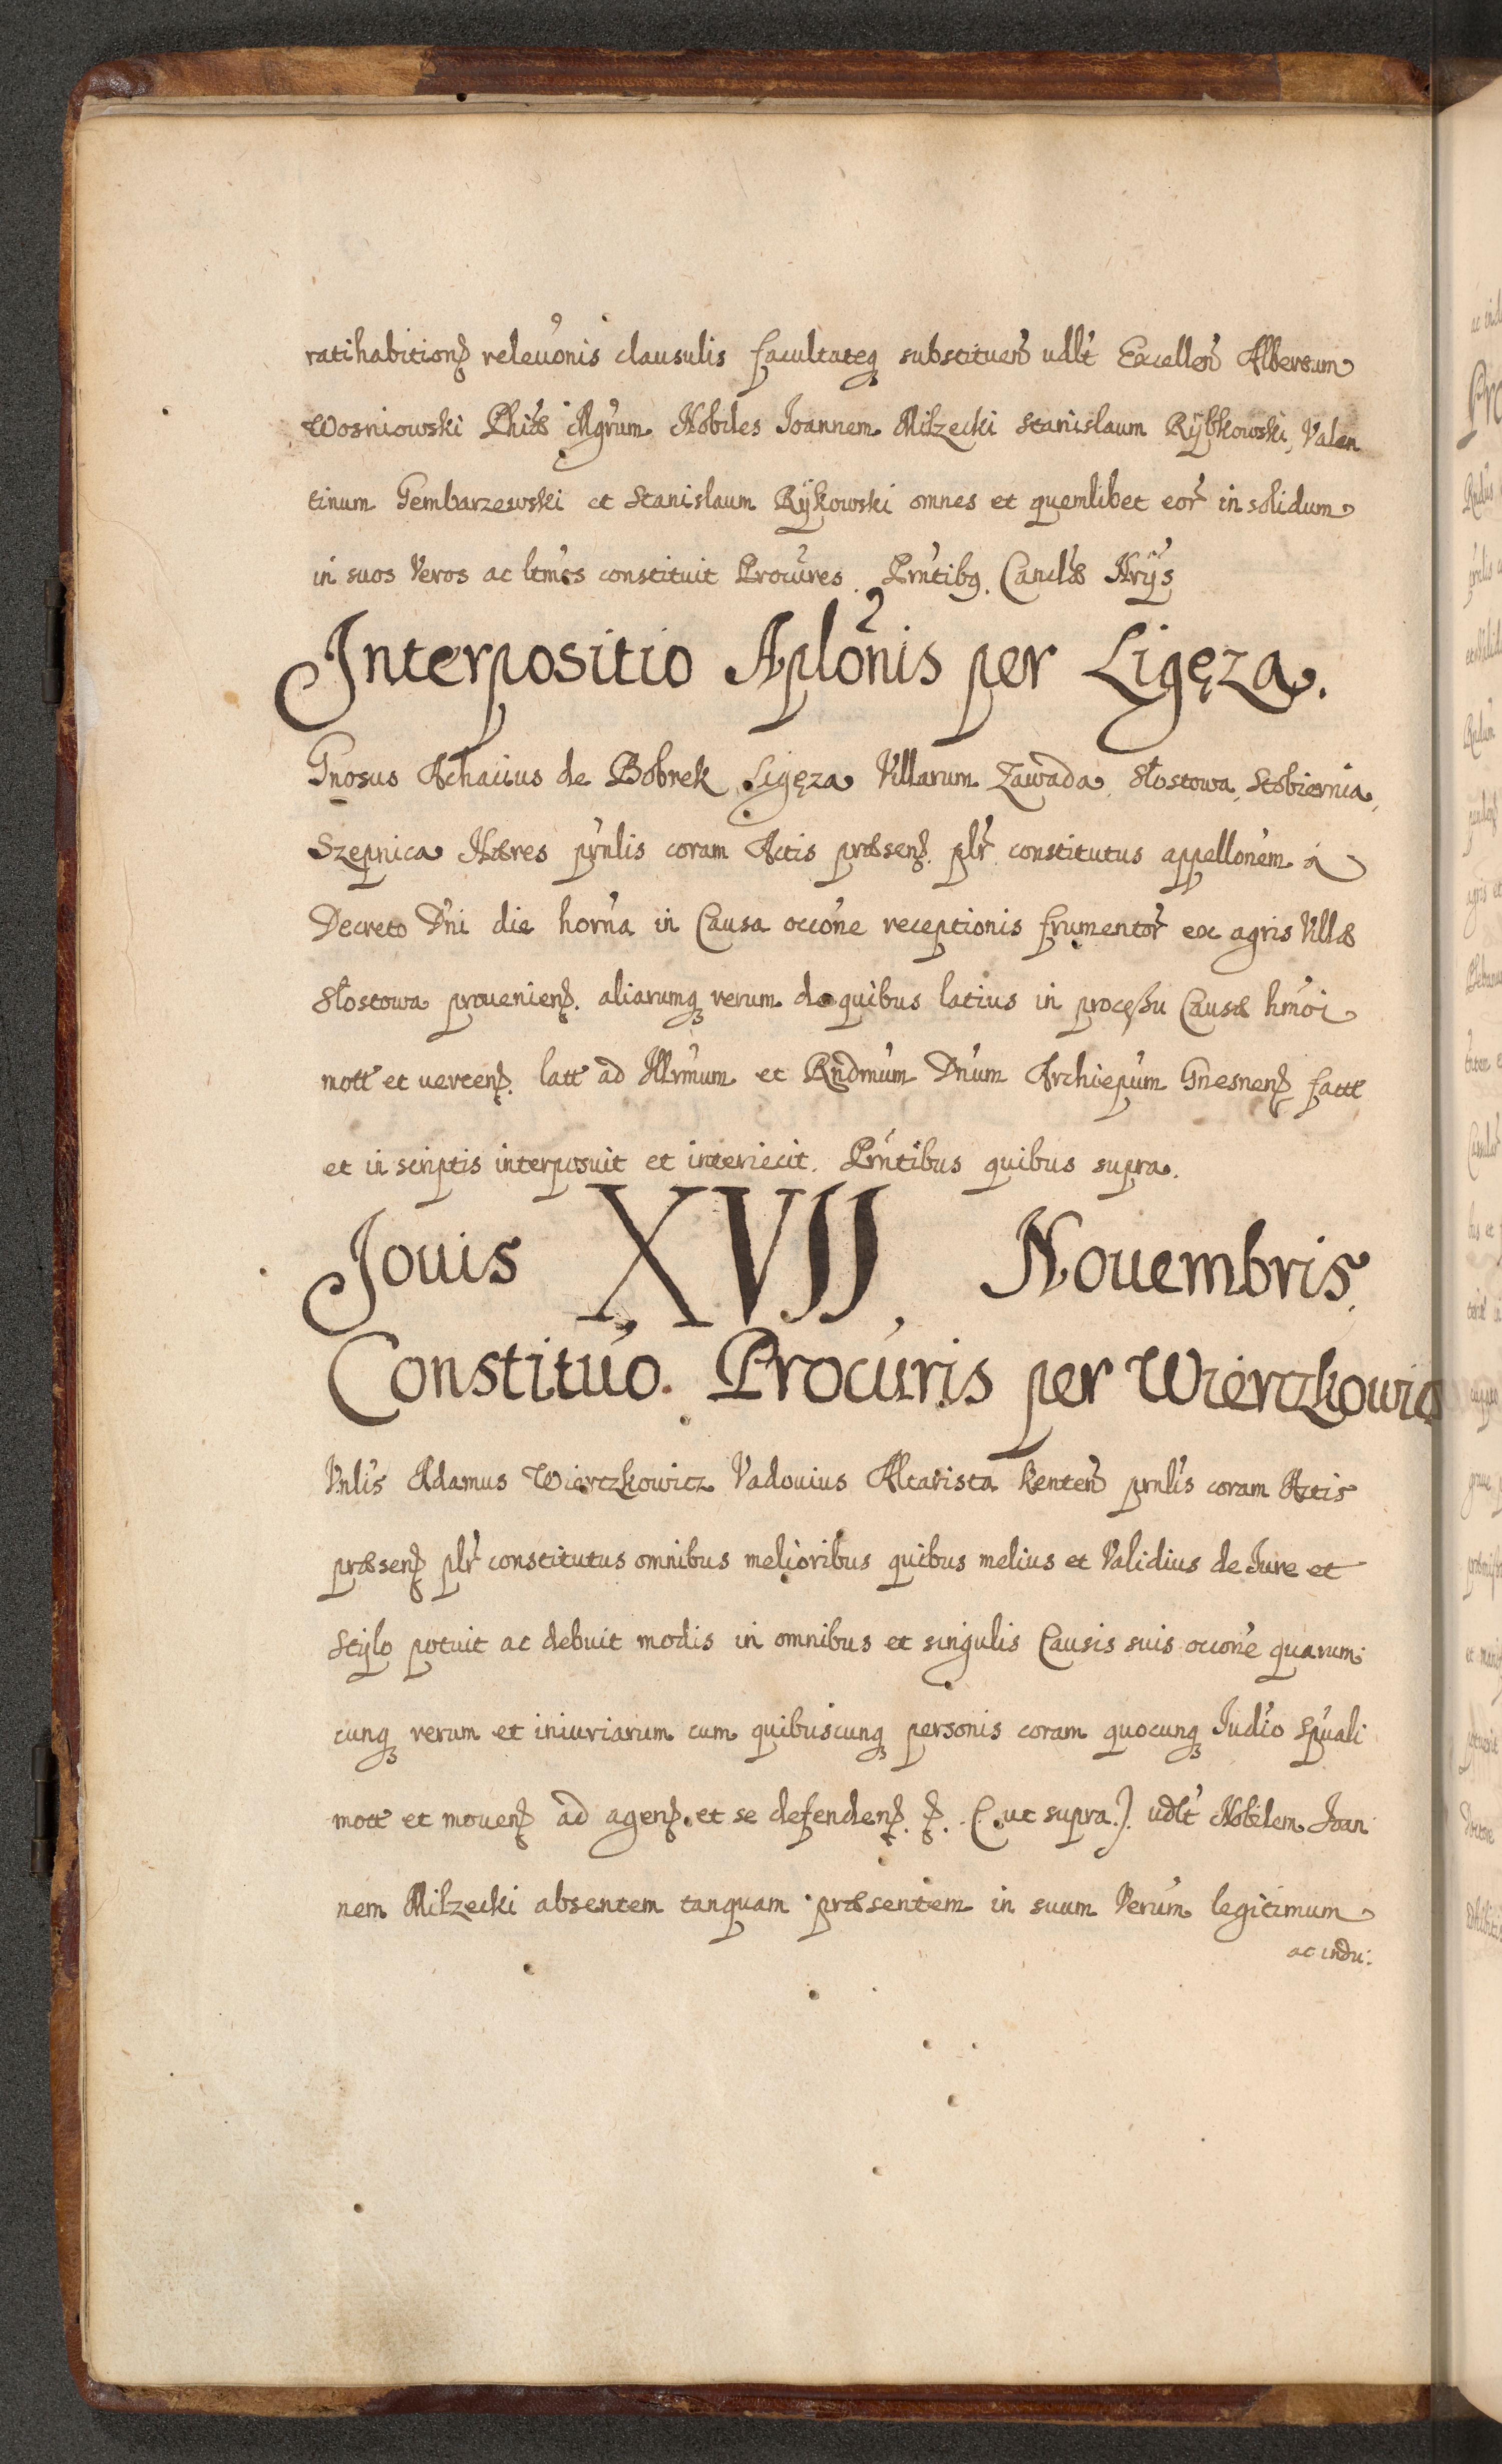 ratihabitionę releuonis clausulis facultateq substituen udlt Excellen Albertum
Wosniowski Phiæ Mgrum Nobiles Joannem Milzecki Stanislaum Rÿbkowski, Valen
tinum Gembarzewski et Stanislaum Rÿkowski omnes et quemlibet eor in solidum
in suos Veros ac ltmos constituit Procures. Prntibq. Canclæ Nrÿs
Interpositio Aplonis per Ligęza.
Gnosus Achacius de Bobrek Ligęza Villarum Zawada, Słostowa, Stobiernia,
Szepnica Hæres prnlis coram Actis præsen. plr constitutus appellonem à
Decreto Dni die horna in Causa occone receptionis frumentor ex agris Villæ
Słostowa prouenien. aliarumq rerum de quibus latius in processu Causæ hmoi
mott et verten. latt ad Illrmum et Rndmum Dnum Archiepum Gnesnen factt
et in scriptis interposuit et interiecit. Prntibus quibus supra.
Jouis XVII. Nouembris.
Constituo. Procuris per Wierczkowicz
Vnlis Adamus Wierczkowicz Vadouius Altarista Kenten prnlis coram Actis
præsen plr constitutus omnibus melioribus quibus melius et Validius de Iure et
Stÿlo potuit ac debuit modis in omnibus et singulis Causis suis occone quarum:
cunq rerum et iniuriarum cum quibuscunq personis coram quocunq Iudio Spuali
mott et mouen ad agen. et se defenden. (ut supra.). udlt Nobilem Joan
nem Milzecki absentem tanquam præsentem in suum Verum legitimum
ac indu: